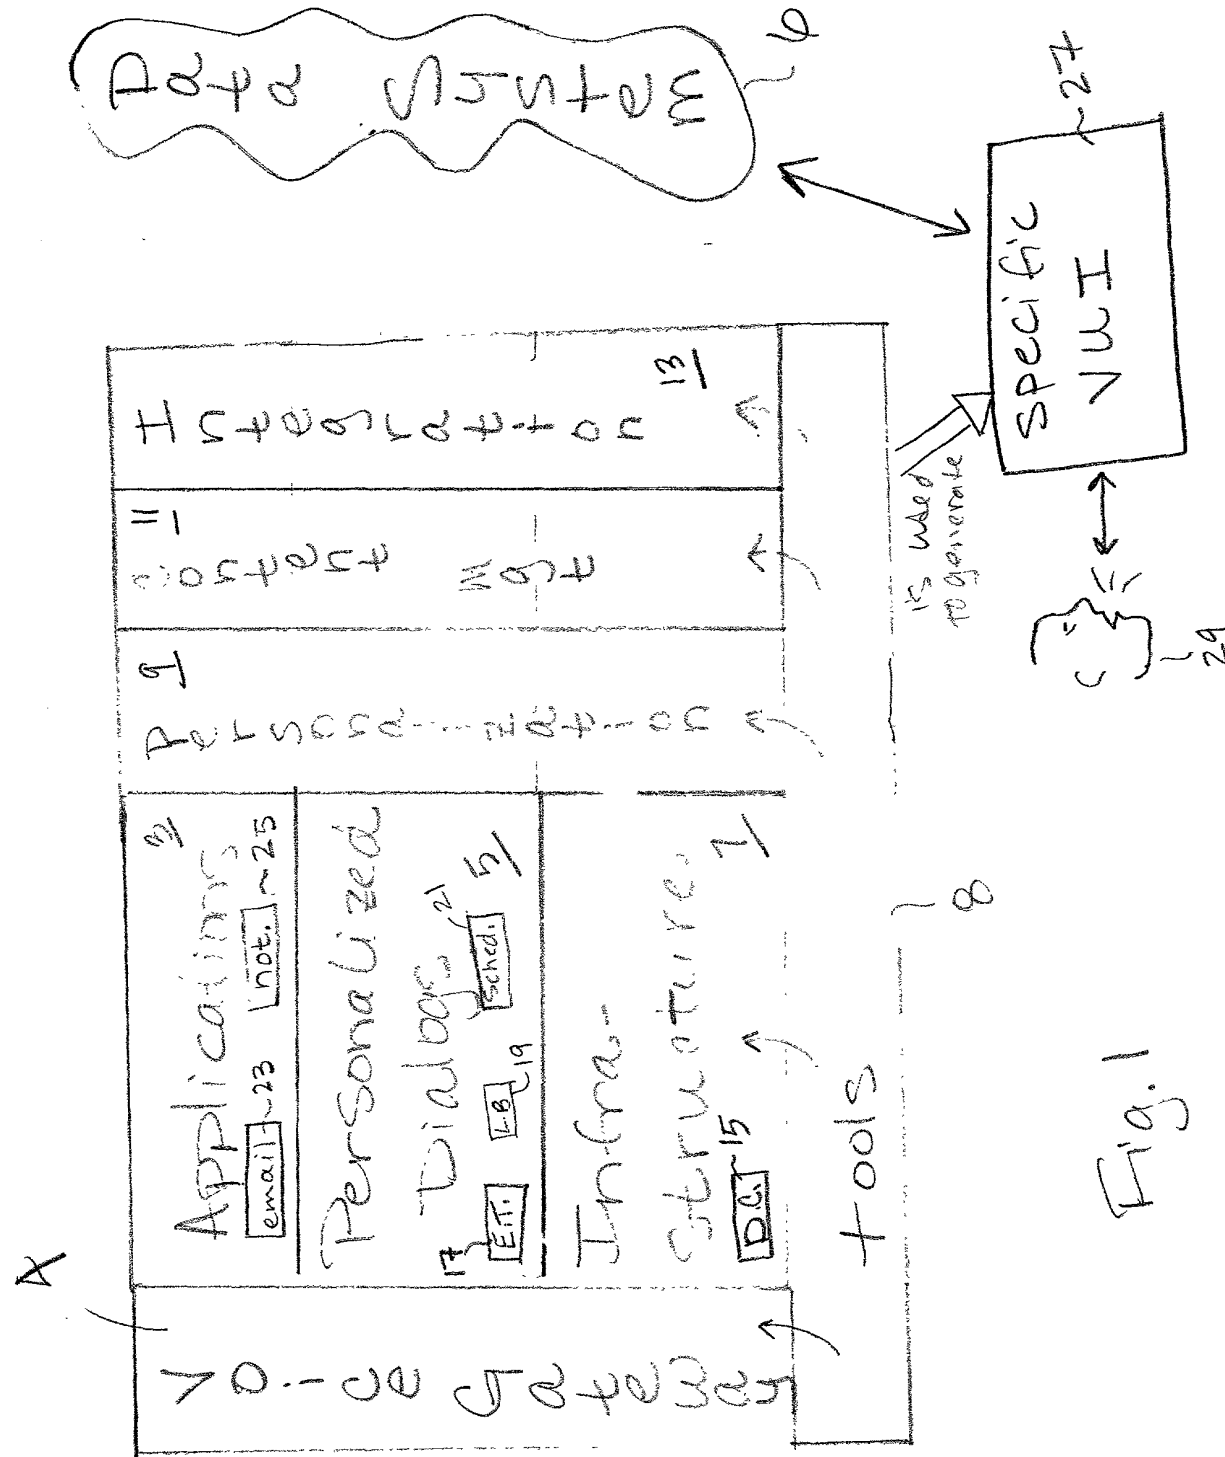 A
Voice Gateway
Applications 3
email ~23 not. ~25
Personalized
Dialogs 5
17 E.T. L.B 19 Sched. 21
Infra-
structure 7
D.C. ~15
Personalization 9
Content Mgt 11
Integration 13
Data System
6
tools
8
is used
to generate
Specific
VUI
27
29
Fig. 1